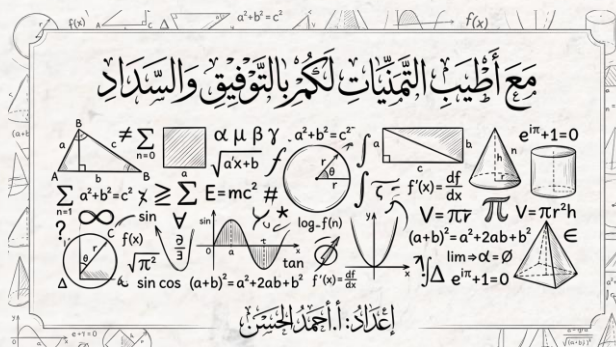 مَعَ أَطْيَبِ التَّمَنِّيَّاتِ لَكُمْ بِالتَّوْفِيقِ وَالسَّدَادِ
≠ ∑ n=0 α μ β γ a²+b²=c² e^iπ+1=0
√a'x+b
∑ n=1 a²+b²=c² ≥ ∑ E=mc² # f'(x)=df/dx
∞ sin ∀ sin log-f(n) V=πr π V=πr²h
? f(x) (a+b)²=a²+2ab+b² ∈
√π² tan lim⇒α=Ø
Δ sin cos (a+b)²=a²+2ab+b² f'(x)=df/dx ∫Δ e^iπ+1=0
إعْدَاد: أ.أَحْمَدُ الْحَسَن